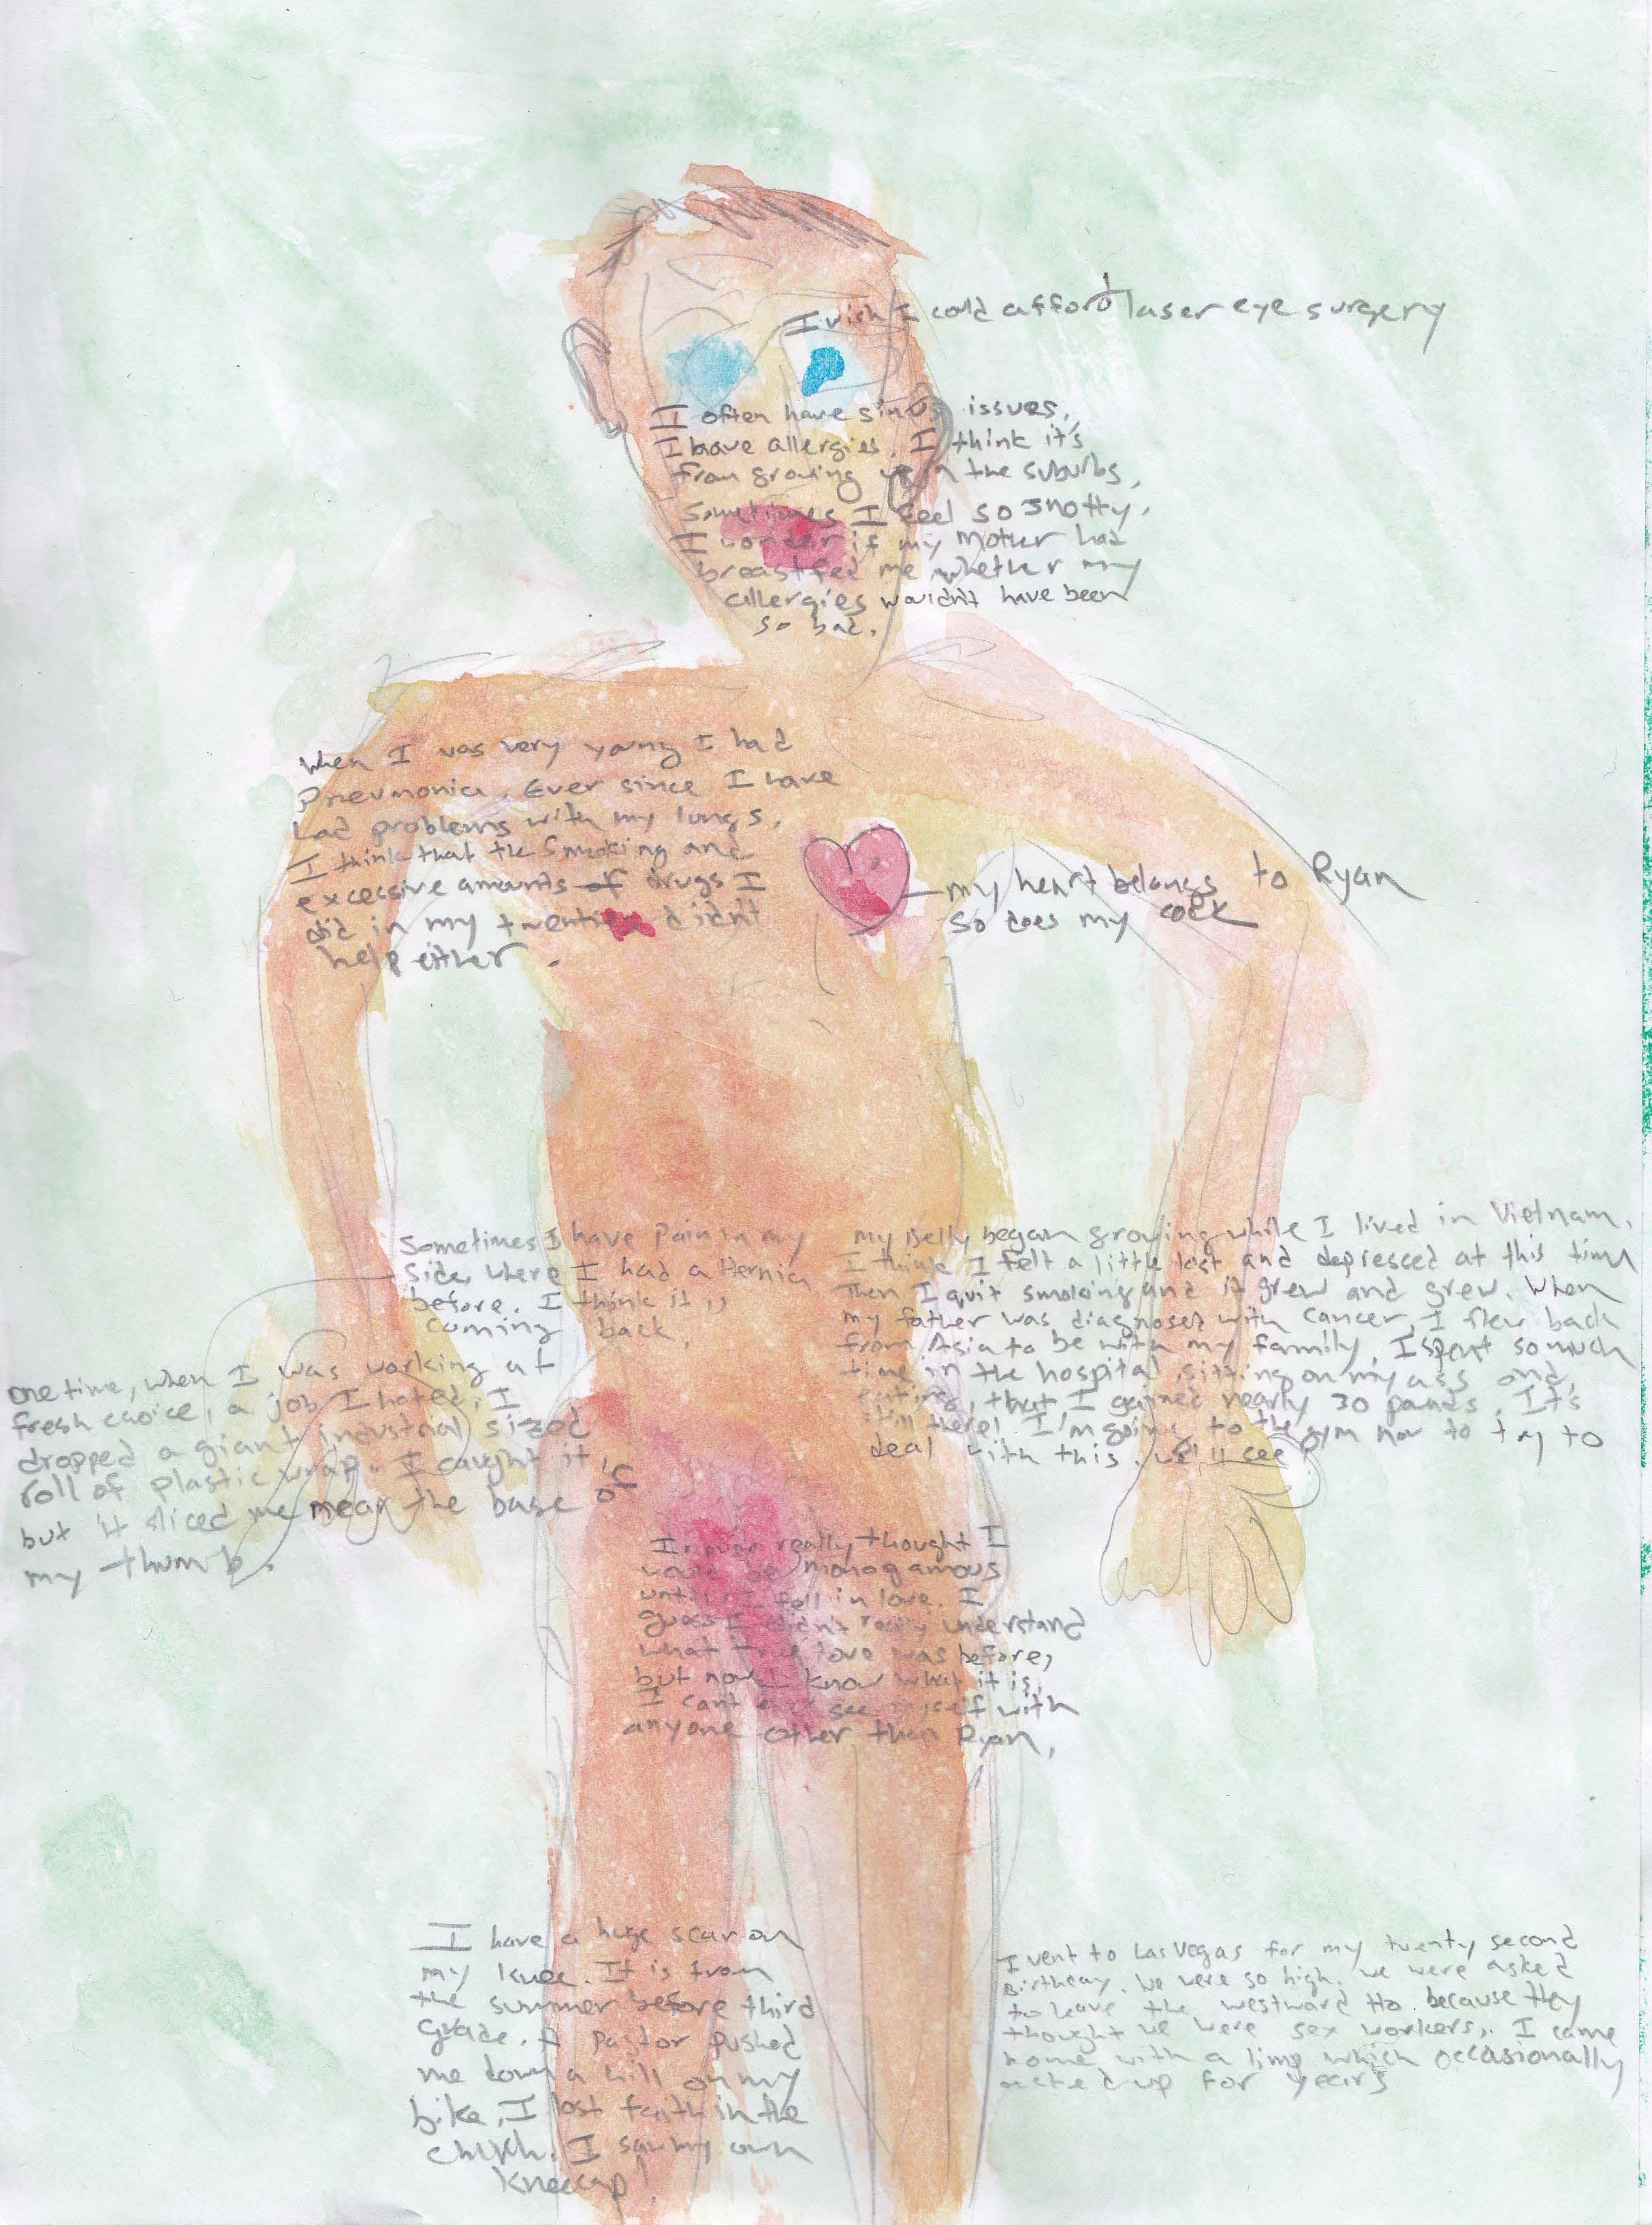 I wish I could afford laser eye surgery
I often have sinus issues,
I have allergies. I think it's
from growing up in the suburbs,
Sometimes I feel so snotty.
I wonder if my mother had
breastfed me whether my
allergies wouldn't have been
so bad.
When I was very young I had
Pneumonia. Ever since I have
had problems with my lungs,
I think that the smoking and
excessive amounts of drugs I
did in my twenties didn't
help either.
my heart belongs to Ryan
So does my cock
Sometimes I have Pain in my
side, where I had a Hernia
before. I think it is
coming back.
my Belly began growing while I lived in Vietnam.
I think I felt a little lost and depressed at this time
Then I quit smoking and it grew and grew. When
my father was diagnosed with cancer, I flew back
from Asia to be with my family. I spent so much
time in the hospital, sitting on my ass and
eating, that I gained nearly 30 pounds. It's
still there! I'm going to the gym now to try to
deal with this. we'll see?
one time, when I was working at
fresh choice, a job I hated, I
dropped a giant industrial sized
roll of plastic wrap. I caught it,
but it sliced me near the base of
my thumb.
I never really thought I
would be monogamous
until I fell in love. I
guess I didn't really understand
what true love was before,
but now I know what it is.
I can't ever see myself with
anyone other than Ryan.
I have a huge scar on
my knee. It is from
the summer before third
grade. A pastor pushed
me down a hill on my
bike, I lost faith in the
church. I saw my own
kneecap!
I went to Las Vegas for my twenty second
Birthday. We were so high. we were asked
to leave the Westward Ho because they
thought we were sex workers. I came
home with a limp which occasionally
acted up for years